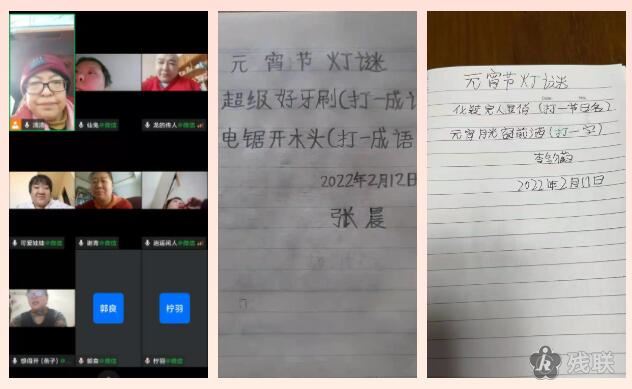 清清
仙鬼@微信
龙的传人@微信
可爱娃娃@微信
谢青@微信
逍遥闲人@微信
郭良
柠羽
想得开（燕子）@...
郭良@微信
柠羽@微信
元宵节灯谜
超级好牙刷(打一成语
电锯开木头(打一成语
2022年2月12日
张晨
元宵节灯谜
化装完人显俏(打一节日名)
元宵月光窗前洒(打一字)
2022年2月12日
残联